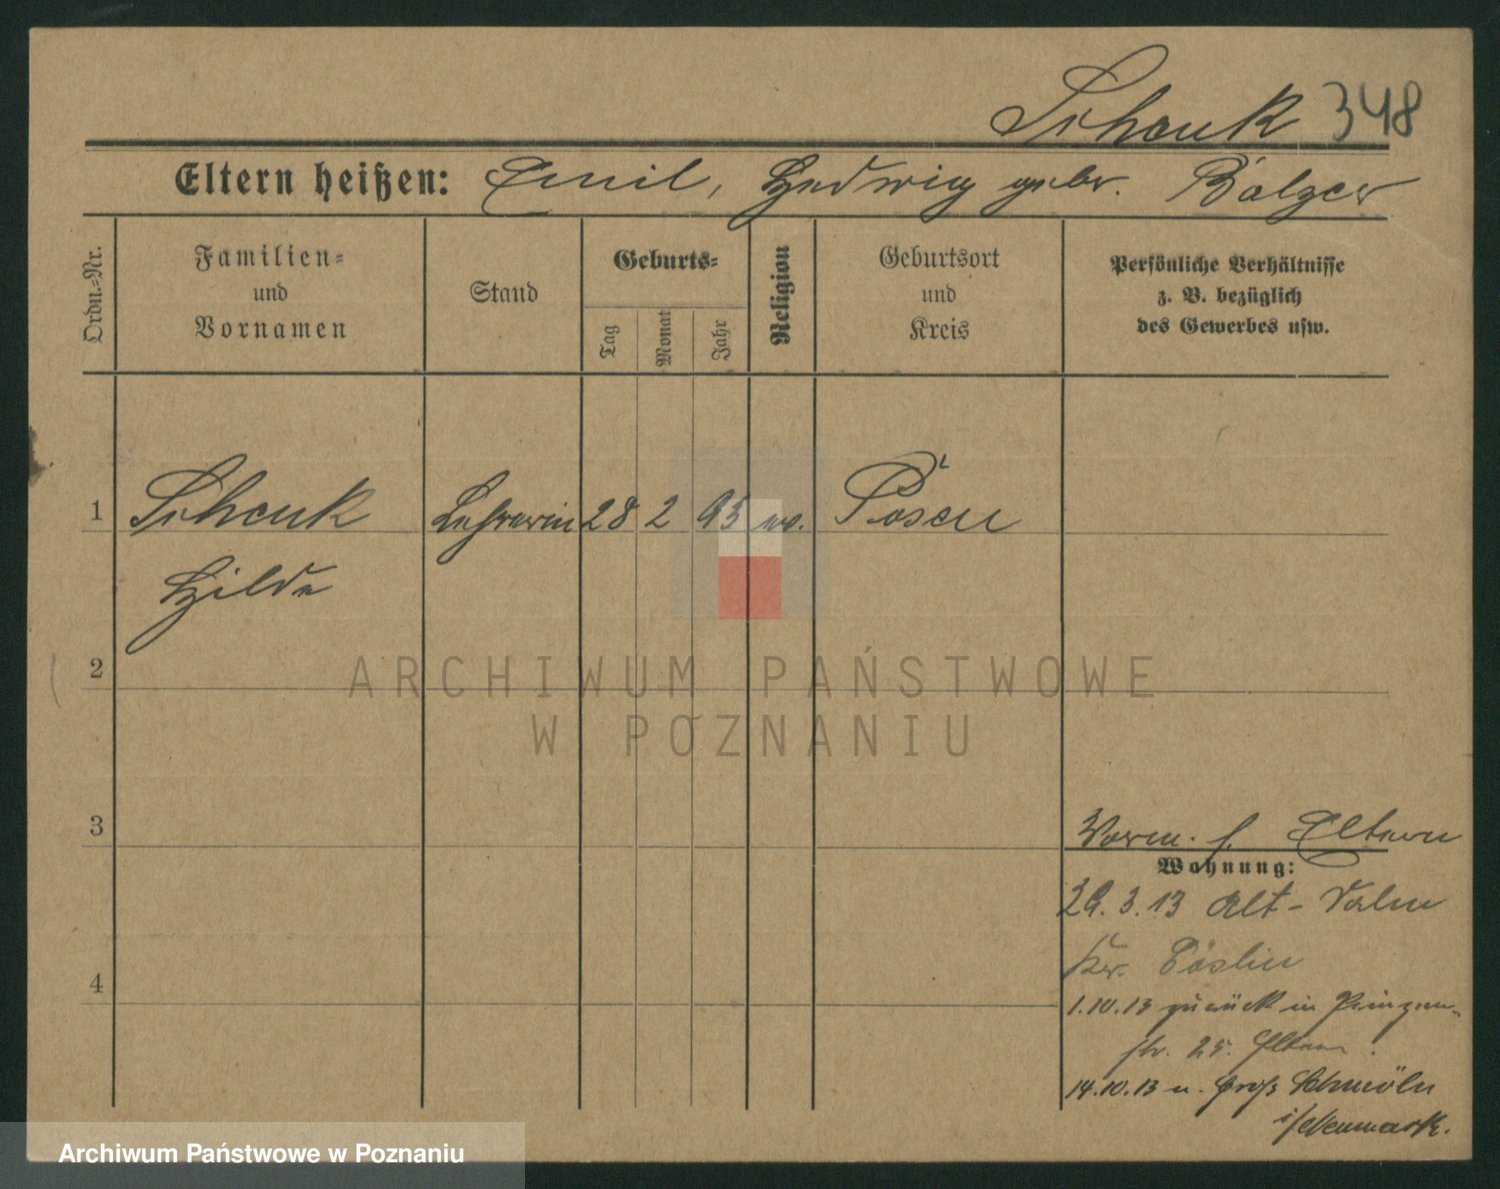 Schenk 348
Eltern heißen: Emil, Hedwig gebr. Balzer
Ordn.-Nr.
Familien-
und
Vornamen
Stand
Geburts-
Tag
Monat
Jahr
Religion
Geburtsort
und
Kreis
Persönliche Verhältnisse
z. B. bezüglich
des Gewerbes usw.
1 Schenk Lehrerin 28 2 95 ev. Posen
Hilde
2
ARCHIWUM PAŃSTWOWE
W POZNANIU
3
Vorm. s. Eltern
Wohnung:
29.3.13 Alt-
Kr. Köslin
4
1.10.13 zurück in Prinzen-
str. 25. Eltern.
14.10.13 n. Groß
i/Neumark.
Archiwum Państwowe w Poznaniu